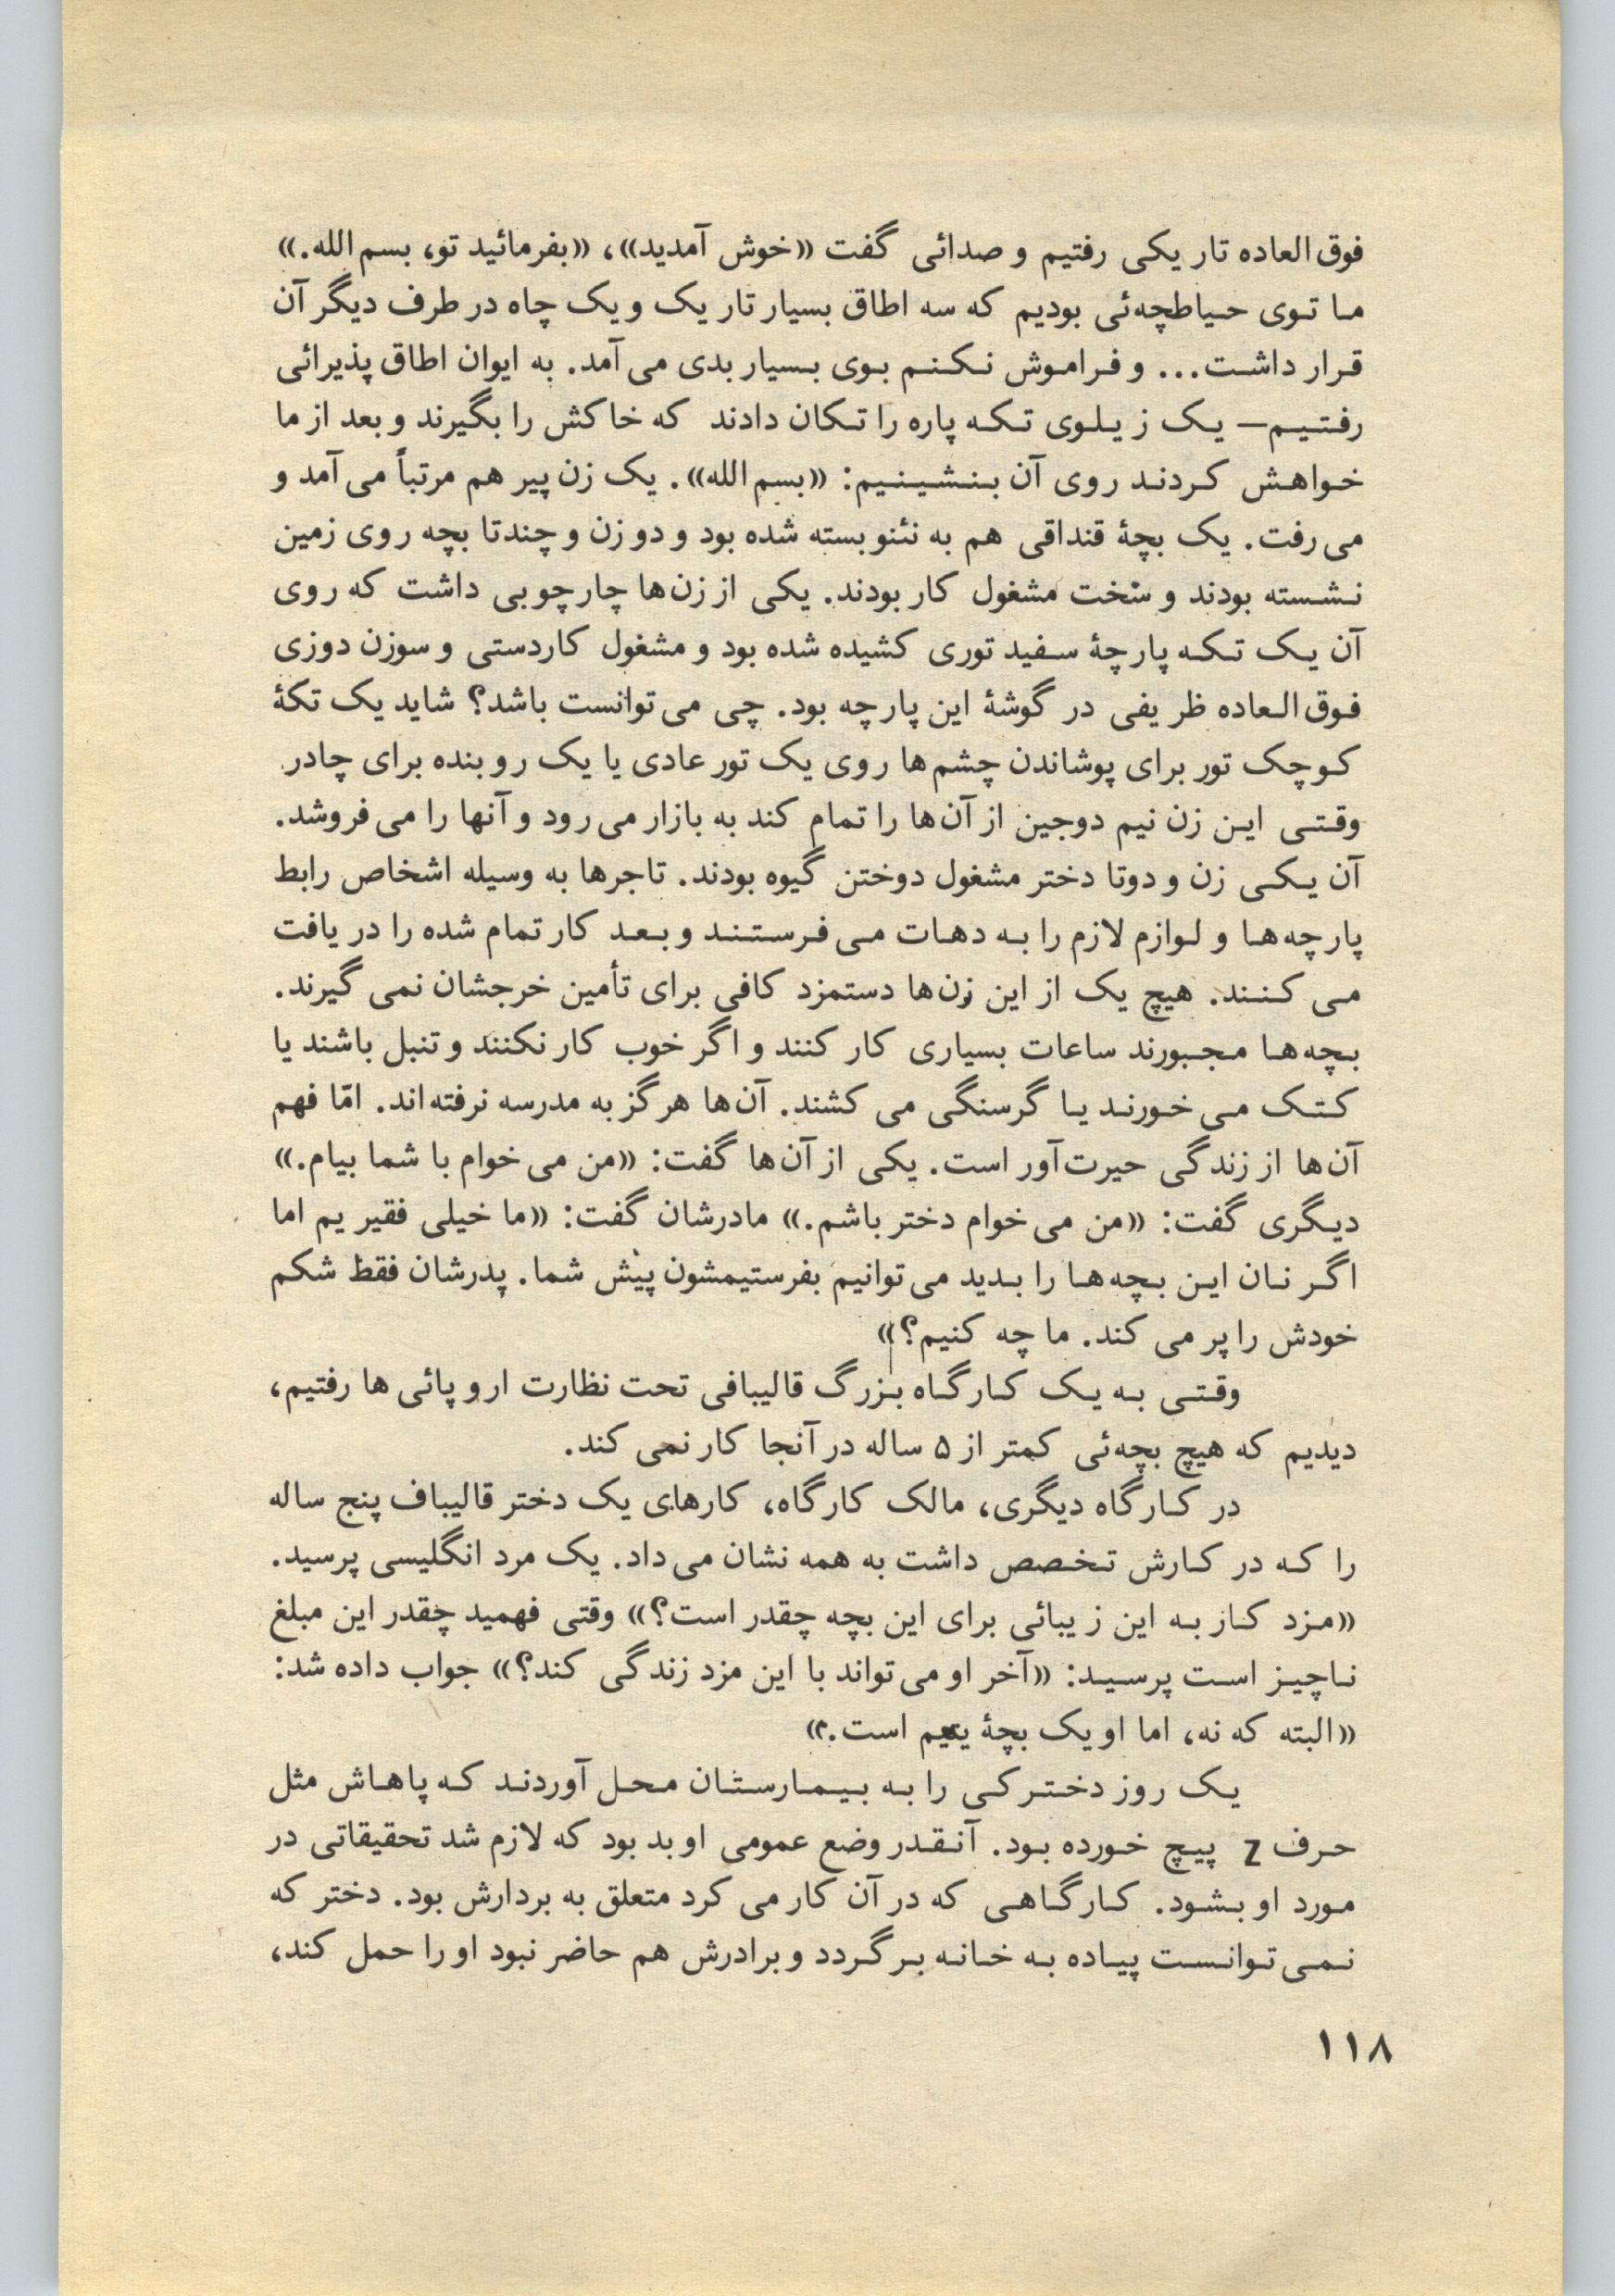 فوق العاده تاریکی رفتیم و صدائی گفت «خوش آمدید»، «بفرمائید تو، بسم الله.»
ما توی حیاطچه‌ئی بودیم که سه اطاق بسیار تاریک و یک چاه در طرف دیگر آن
قرار داشت... و فراموش نکنم بوی بسیار بدی می آمد. به ایوان اطاق پذیرائی
رفتیم— یک زیلوی تکه پاره را تکان دادند که خاکش را بگیرند و بعد از ما
خواهش کردند روی آن بنشینیم: «بسم الله». یک زن پیر هم مرتباً می آمد و
می رفت. یک بچهٔ قنداقی هم به نئنو بسته شده بود و دو زن و چندتا بچه روی زمین
نشسته بودند و سخت مشغول کار بودند. یکی از زن‌ها چارچوبی داشت که روی
آن یک تکه پارچهٔ سفید توری کشیده شده بود و مشغول کاردستی و سوزن دوزی
فوق العاده ظریفی در گوشهٔ این پارچه بود. چی می توانست باشد؟ شاید یک تکهٔ
کوچک تور برای پوشاندن چشم‌ها روی یک تور عادی یا یک روبنده برای چادر.
وقتی این زن نیم دوجین از آن‌ها را تمام کند به بازار می رود و آنها را می فروشد.
آن یکی زن و دوتا دختر مشغول دوختن گیوه بودند. تاجرها به وسیله اشخاص رابط
پارچه‌ها و لوازم لازم را به دهات می فرستند و بعد کار تمام شده را دریافت
می کنند. هیچ یک از این زن‌ها دستمزد کافی برای تأمین خرجشان نمی گیرند.
بچه‌ها مجبورند ساعات بسیاری کار کنند و اگر خوب کار نکنند و تنبل باشند یا
کتک می خورند یا گرسنگی می کشند. آن‌ها هرگز به مدرسه نرفته‌اند. امّا فهم
آن‌ها از زندگی حیرت‌آور است. یکی از آن‌ها گفت: «من می خوام با شما بیام.»
دیگری گفت: «من می خوام دختر باشم.» مادرشان گفت: «ما خیلی فقیریم اما
اگر نان این بچه‌ها را بدید می توانیم بفرستیمشون پیش شما. پدرشان فقط شکم
خودش را پر می کند. ما چه کنیم؟»
وقتی به یک کارگاه بزرگ قالیبافی تحت نظارت اروپائی ها رفتیم،
دیدیم که هیچ بچه‌ئی کمتر از ۵ ساله در آنجا کار نمی کند.
در کارگاه دیگری، مالک کارگاه، کارهای یک دختر قالیباف پنج ساله
را که در کارش تخصص داشت به همه نشان می داد. یک مرد انگلیسی پرسید.
«مزد کار به این زیبائی برای این بچه چقدر است؟» وقتی فهمید چقدر این مبلغ
ناچیز است پرسید: «آخر او می تواند با این مزد زندگی کند؟» جواب داده شد:
«البته که نه، اما او یک بچهٔ یتیم است.»
یک روز دخترکی را به بیمارستان محل آوردند که پاهاش مثل
حرف Z پیچ خورده بود. آنقدر وضع عمومی او بد بود که لازم شد تحقیقاتی در
مورد او بشود. کارگاهی که در آن کار می کرد متعلق به بردارش بود. دختر که
نمی توانست پیاده به خانه برگردد و برادرش هم حاضر نبود او را حمل کند،
۱۱۸